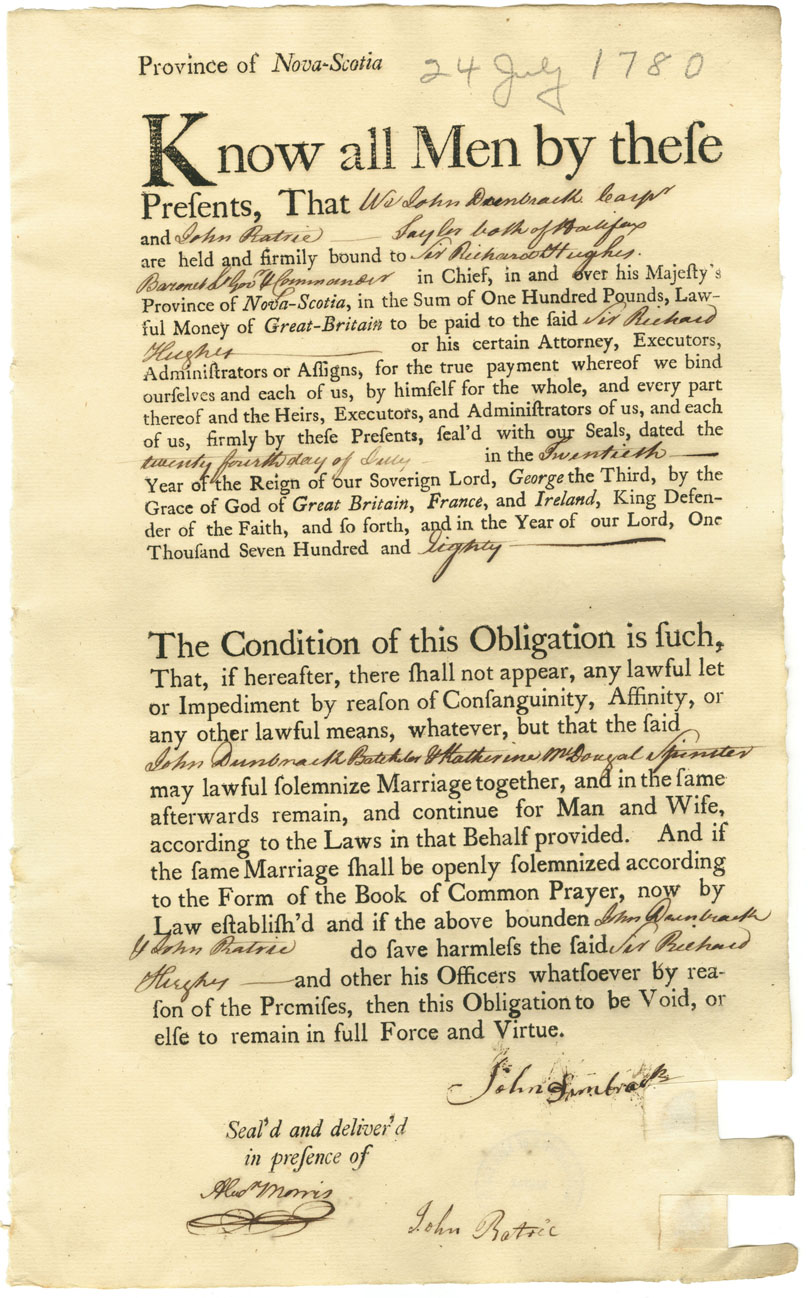 Province of Nova-Scotia 24 July 1780
Know all Men by theſe
Preſents, That We John Dunbrack Carpr
and John Ratrie — Taylor both of Halifax
are held and firmily bound to Sir Richard Hughes.
Baronet Lt Govr & Commander in Chief, in and over his Majeſty's
Province of Nova-Scotia, in the Sum of One Hundred Pounds, Law-
ful Money of Great-Britain to be paid to the said Sir Richard
Hughes — or his certain Attorney, Executors,
Adminiſtrators or Aſſigns, for the true payment whereof we bind
ourſelves and each of us, by himſelf for the whole, and every part
thereof and the Heirs, Executors, and Adminiſtrators of us, and each
of us, firmly by theſe Preſents, ſeal'd with our Seals, dated the
twenty fourth day of July — in the Twentieth —
Year of the Reign of our Soverign Lord, George the Third, by the
Grace of God of Great Britain, France, and Ireland, King Defen-
der of the Faith, and ſo forth, and in the Year of our Lord, One
Thouſand Seven Hundred and Eighty —
The Condition of this Obligation is ſuch,
That, if hereafter, there ſhall not appear, any lawful let
or Impediment by reaſon of Conſanguinity, Affinity, or
any other lawful means, whatever, but that the said
John Dunbrack Batchlor & Katherine McDougal Spinster
may lawful ſolemnize Marriage together, and in the ſame
afterwards remain, and continue for Man and Wife,
according to the Laws in that Behalf provided. And if
the ſame Marriage ſhall be openly ſolemnized according
to the Form of the Book of Common Prayer, now by
Law eſtabliſh'd and if the above bounden John Dunbrack
& John Ratrie do ſave harmleſs the ſaid Sir Richard
Hughes — and other his Officers whatſoever by rea-
ſon of the Premiſes, then this Obligation to be Void, or
elſe to remain in full Force and Virtue.
John Dunbrack
Seal'd and deliver'd
in preſence of
Alexr Morris
John Ratrie